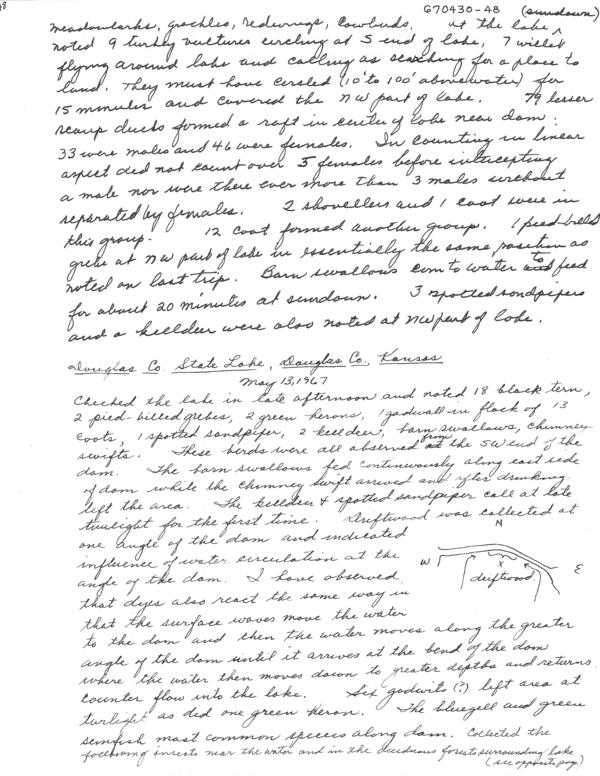 48
670430-48 (sundown)
meadowlarks, grackles, redwings, cowbirds, at the lake
noted 9 turkey vultures circling at S end of lake, 7 willet
flying around lake and calling as searching for a place to
land. They must have circled (10' to 100' above water) for
15 minutes and covered the NW part of lake. 79 lesser
scaup ducks formed a raft in center of lake near dam.
33 were males and 46 were females. In counting in linear
aspect did not count over 5 females before intercepting
a male nor were there ever more than 3 males without
separated by females. 2 shovellers and 1 coot were in
this group. 12 coot formed another group. 1 pied-billed
grebe at NW part of lake in essentially the same position as
noted on last trip. Barn swallows com to water to feed
for about 20 minutes at sundown. 3 spotted sandpipers
and a killdeer were also noted at NW part of lake.
Douglas Co. State Lake, Douglas Co., Kansas
May 13, 1967
Checked the lake in late afternoon and noted 18 black tern,
2 pied-billed grebes, 2 green herons, 1 gadwall in flock of 13
coots, 1 spotted sandpiper, 2 killdeer, barn swallows, chimney
swifts. These birds were all observed from the SW end of the
dam. The barn swallows fed continuously along east side
of dam while the chimney swift arrived and after drinking
left the area. The killdeer & spotted sandpiper call at late
twilight for the first time. Driftwood was collected at
one angle of the dam and indicated
influence of water circulation at the
angle of the dam. I have observed
that dyes also react the same way in
that the surface waves move the water
N
W
E
x
driftwood
to the dam and then the water moves along the greater
angle of the dam until it arrives at the bend of the dam
where the water then moves down to greater depths and returns
counter flow into the lake. Six godwits (?) left area at
twilight as did one green heron. The bluegill and green
sunfish most common species along dam. Collected the
following insects near the water and in the deciduous forest surrounding lake
(see opposite page)